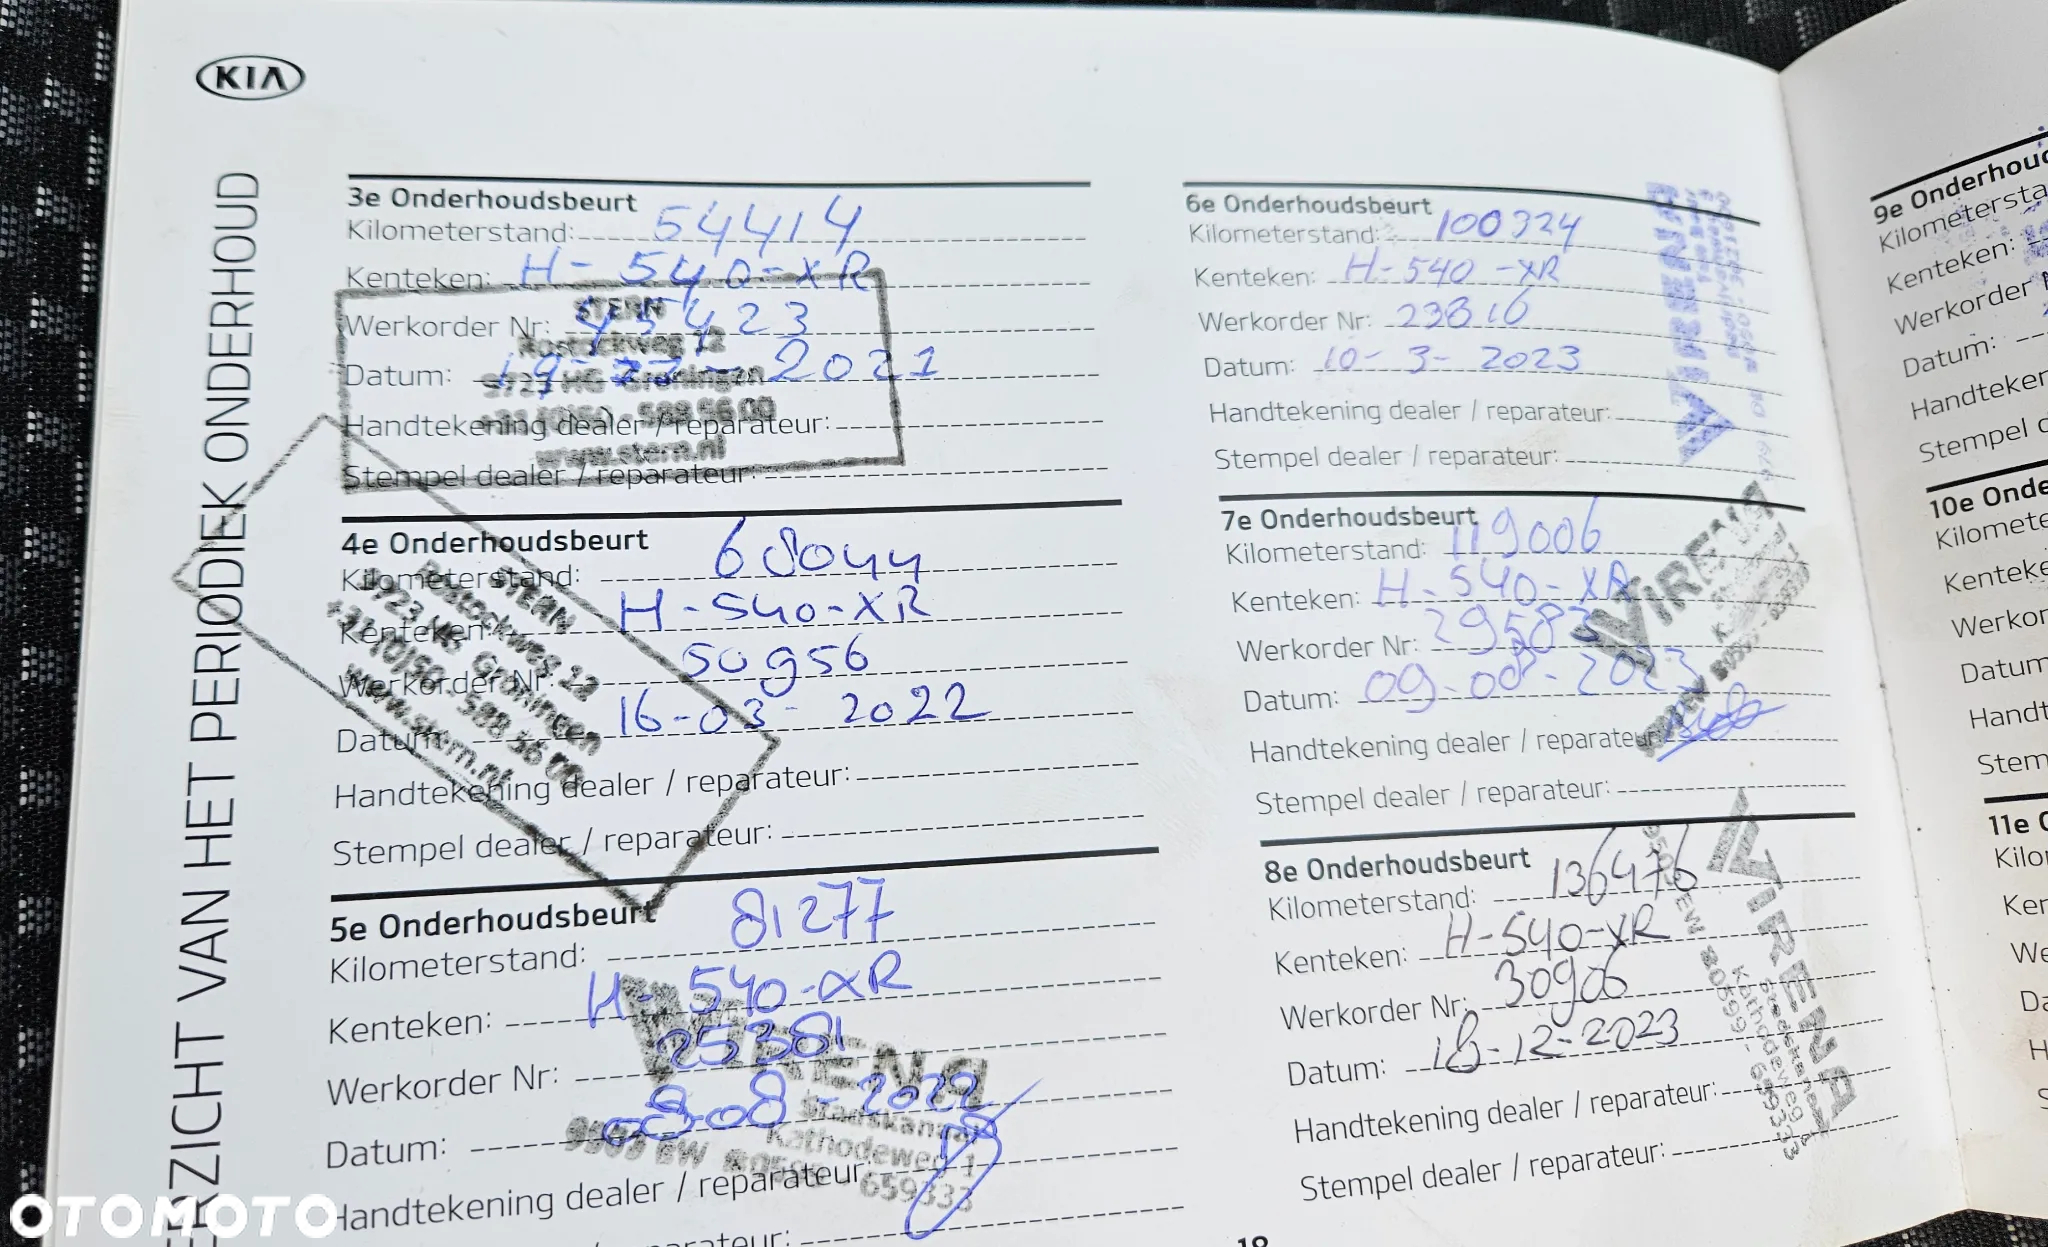 KIA
ERZICHT VAN HET PERIODIEK ONDERHOUD
3e Onderhoudsbeurt
Kilometerstand: 54414
Kenteken: H-540-XR
Werkorder Nr: 45423
Datum: 19- - 2021
Handtekening dealer / reparateur:
Stempel dealer / reparateur:
STERN
Rostockweg 12
9723 HG Groningen
+31(0)50 - 588 56 00
www.stern.nl
4e Onderhoudsbeurt
Kilometerstand: 68044
Kenteken: H-540-XR
Werkorder Nr: 50956
Datum: 16-03-2022
Handtekening dealer / reparateur:
Stempel dealer / reparateur:
STERN
Rostockweg 12
9723 HG Groningen
+31(0)50 - 588 56 00
www.stern.nl
5e Onderhoudsbeurt
Kilometerstand: 81277
Kenteken: H-540-XR
Werkorder Nr: 25381
Datum: 08-08-2022
Handtekening dealer / reparateur:
reparateur:
WIRENGA
Stadskanaal
Kathodeweg 1
659333
6e Onderhoudsbeurt
Kilometerstand: 100324
Kenteken: H-540-XR
Werkorder Nr: 23816
Datum: 10-3-2023
Handtekening dealer / reparateur:
Stempel dealer / reparateur:
7e Onderhoudsbeurt
Kilometerstand: 119006
Kenteken: H-540-XR
Werkorder Nr: 29583
Datum: 09-08-2023
Handtekening dealer / reparateur:
Stempel dealer / reparateur:
WIRENGA
8e Onderhoudsbeurt
Kilometerstand: 136476
Kenteken: H-540-XR
Werkorder Nr: 30906
Datum: 18-12-2023
Handtekening dealer / reparateur:
Stempel dealer / reparateur:
WIRENGA
Stadskanaal
Kathodeweg 1
0599 - 659333
9e Onderhoud
Kilometersta
Kenteken:
Werkorder
Datum:
Handteker
Stempel d
10e Onde
Kilomete
Kenteke
Werkor
Datum
Handt
Stem
11e O
Kilo
Ken
We
Da
H
S
OTOMOTO